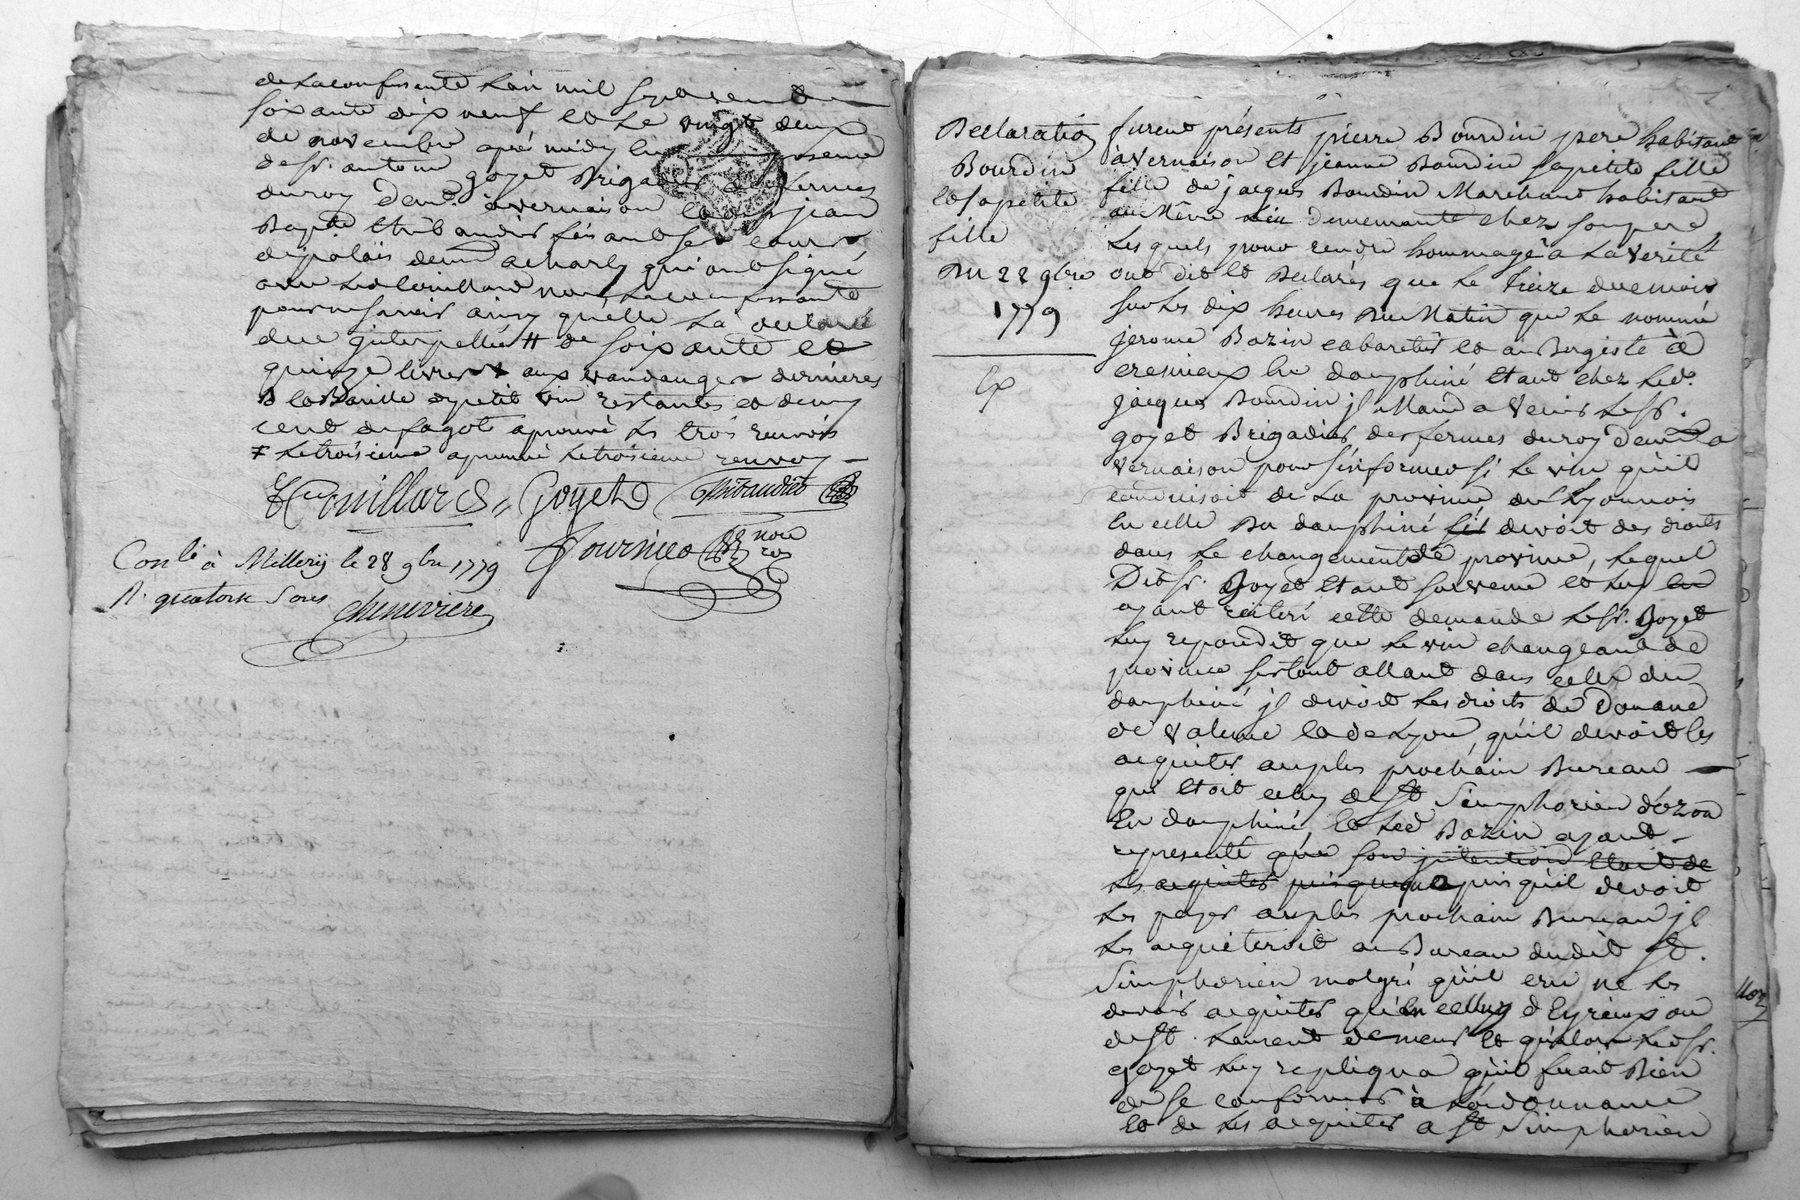 de la confisente L'an mil sept cent
soixante dix neuf et Le vingt deux
de novembre aprés midy
de Sr. antoine goyet Brigadier des fermes
du roy demt. à vernaison et de jean
Bapte thibaudier faisant ses cours
de palais demt a charly qui ont signé
avec Led Couillard non La confisente
pour ne sçavoir ainsy quelle L'a declaré
due interpellée # de soixante et
quinze livres # aux vandanges dernieres
# la Barille de petit vin restante et demy
cent de fagots aprouvé Les trois renvois
# Le troisieme aprouvé Le troisieme renvoy
Couillard Goyet Thibaudier
Fournier nore roy
Conlé à Millery le 28 9bre 1779
R. quatorze Sous
Cheneviere
Declaration
Bourdin
et sa petite
fille
Du 28 9bre
1779
Ex
furent présents pierre Bourdin pere habitant
à vernaison et jeanne Bourdin sa petite fille
fille de jacques Bourdin Marchand habitant
au Même Lieu demeurante chez son pere
Les quels pour rendre hommage à La verité
ont dit et Declarés que Le treize du mois
sur Les dix heures du Matin que Le nommé
jerome Bazin cabaretier et aubergiste à
cremieux En dauphiné Etant chez Led.
jacques Bourdin jl Manda venir Le Sr.
goyet Brigadier des fermes du roy demt a
vernaison pour s'informer si Le vin qu'il
conduisoit de La province du Lyonnois
En celle Du dauphiné devoit des droits
dans Le changement de province, Lequel
Dit Sr. Goyet Etant survenu et Luy
ayant reiteré cette demande Le Sr. Goyet
Luy repondit que Le vin changeant de
province surtout allant dans celle du
dauphiné jl devoit Les droits de Douane
de valence et de Lyon, qu'il devoit les
acquiter au plus prochain Bureau
qui Etoit celuy de St Simphorien d'ozon
En dauphiné, et Led Bazin ayant
representé que son jntention Etoit de
Les acquiter puisque puis qu'il devoit
Les payer au plus prochain Bureau jl
Les acquiteroit au Bureau dudit St.
Simphorien malgré qu'il cru ne Les
devoir acquiter qu'En celluy d'Eyrieux ou
de St. Laurent de meur et qu'alors Led Sr.
goyet Luy repliqua qu'il feroit Bien
de se conformer à L'ordonnance
et de Les acquiter a St Simphorien